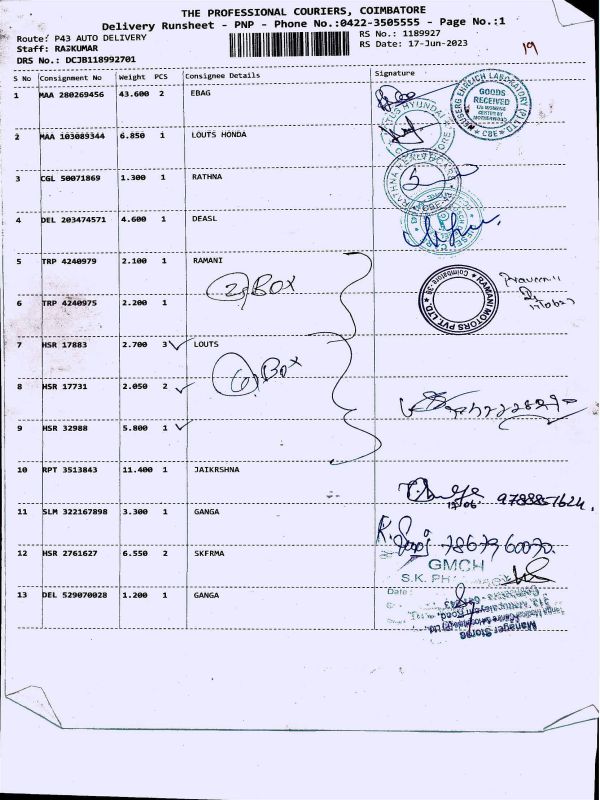 THE PROFESSIONAL COURIERS, COIMBATORE
Delivery Runsheet - PNP - Phone No.:0422-3505555 - Page No.:1
Route: P43 AUTO DELIVERY RS No.: 1189927
Staff: RAJKUMAR RS Date: 17-Jun-2023
DRS No.: DCJB118992701
19
S No Consignment No Weight PCS Consignee Details Signature
1 MAA 280269456 43.600 2 EBAG
GOODS RECEIVED
CBE
2 MAA 103089344 6.850 1 LOUTS HONDA
3 CGL 50071869 1.300 1 RATHNA
4 DEL 203474571 4.600 1 DEASL
5 TRP 4240979 2.100 1 RAMANI
2 Box
RAMANI MOTORS PVT LTD. Coimbatore
6 TRP 4240975 2.200 1
7 HSR 17883 2.700 3 LOUTS
6 Box
8 HSR 17731 2.050 2
9 HSR 32988 5.800 1
10 RPT 3513843 11.400 1 JAIKRSHNA
9788851624
11 SLM 322167898 3.300 1 GANGA
12 HSR 2761627 6.550 2 SKFRMA
GMCH
S.K. PH
13 DEL 529070028 1.200 1 GANGA
Date:
Manager Stores